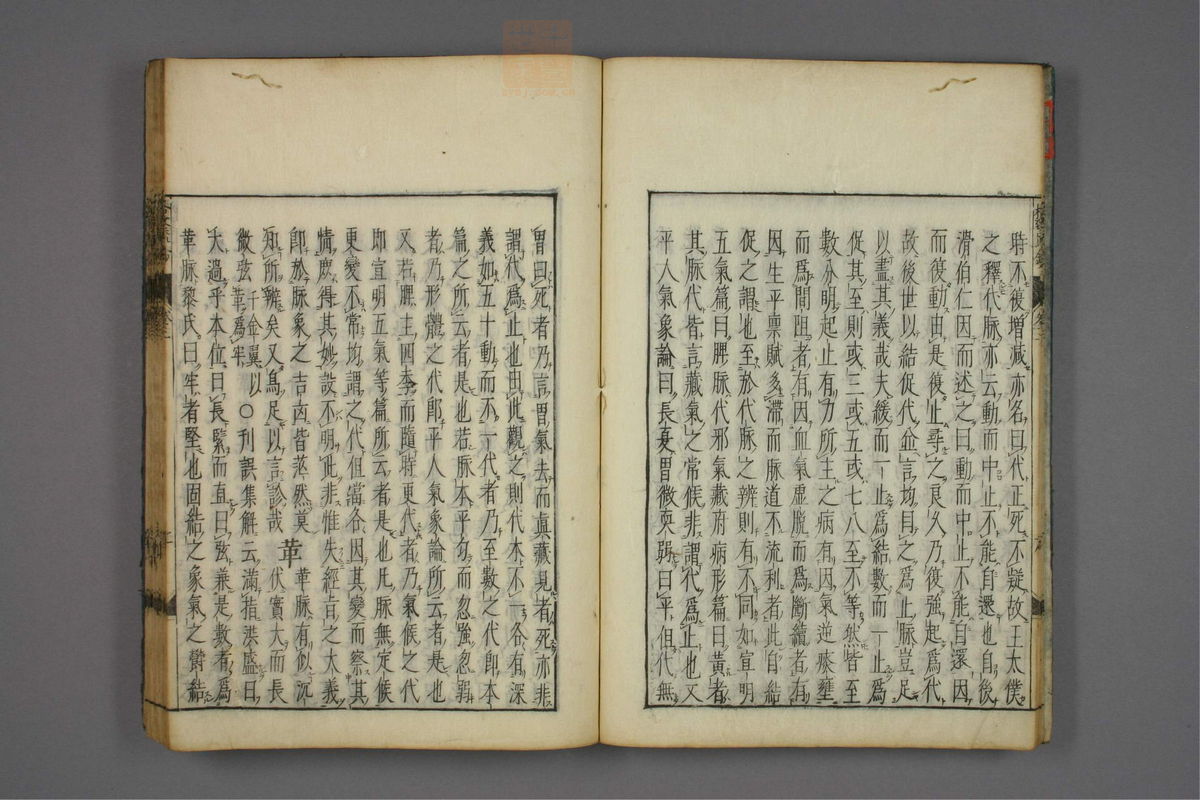 時不復增減亦名曰代正死不疑故王太僕
之釋代脉亦云動而中止不能自還也自後
滑伯仁因而述之曰動而中止不能自還因
而復動由是復止尋之良久乃復強起爲代
故後世以結促代並言均目之爲止脉豈足
以盡其義哉夫緩而一止爲結數而一止爲
促其至則或三或五或七八至不等然皆至
數分明起止有力所主之病有因氣逆痰壅
而爲間阻者有因血氣虛脫而爲斷續者有
因生平稟賦多滯而脉道不流利者此自結
促之謂也至於代脉之辨則有不同如宣明
五氣篇曰脾脉代邪氣藏府病形篇曰黃者
其脉代皆言藏氣之常候非謂代爲止也又
平人氣象論曰長夏胃微耎弱曰平但代無
胃曰死者乃言胃氣去而眞藏見者死亦非
謂代爲止也由此觀之則代本不一各有深
義如五十動而不一代者乃至數之代即本
篇之所云者是也若脉本平匀而忽強忽弱
者乃形體之代即平人氣象論所云者是也
又若脾主四季而隨時更代者乃氣候之代
即宣明五氣等篇所云者是也凡脉無定候
更變不常均謂之代但當各因其變而察其
情庶得其妙設不明此非惟失經旨之大義
即於脉象之吉凶皆茫然莫
知所辨矣又烏足以言診哉
革
革脉有似沉
伏實大而長
微弦
千金翼以
革爲牢
○刊誤集解云滿指洪盛曰
大過乎本位曰長緊而直曰弦兼是數者爲
革脉黎氏曰牢者堅也固結之象氣之欝結